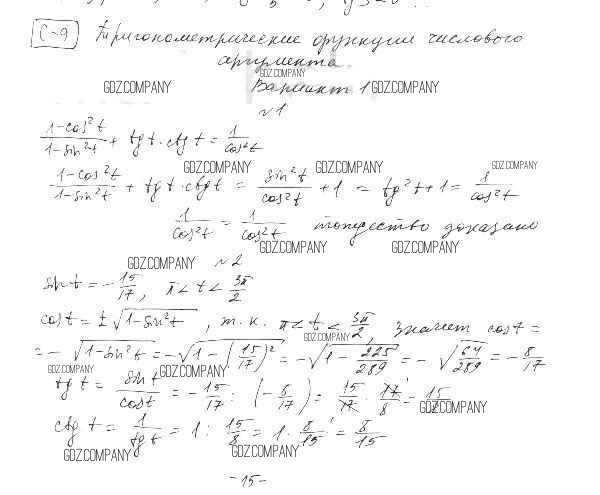 С-9 Тригонометрические функции числового
аргумента.
GDZ.COMPANY
GDZ.COMPANY Вариант 1 GDZ.COMPANY
№1
(1-cos²t)/(1-sin²t) + tg t · ctg t = 1/cos²t
GDZ.COMPANY GDZ.COMPANY GDZ.COMPANY
(1-cos²t)/(1-sin²t) + tg t · ctg t = sin²t/cos²t + 1 = tg²t + 1 = 1/cos²t
1/cos²t = 1/cos²t тождество доказано
GDZ.COMPANY GDZ.COMPANY
GDZ.COMPANY №2
sin t = -15/17, π < t < 3π/2
cos t = ±√(1-sin²t), т.к. π < t < 3π/2, значит cos t =
GDZ.COMPANY
= -√(1-sin²t) = -√(1-(15/17)²) = -√(1-225/289) = -√(64/289) = -8/17
GDZ.COMPANY GDZ.COMPANY
tg t = sin t/cos t = -15/17 : (-8/17) = 15/17 · 17/8 = 15/8
GDZ.COMPANY
ctg t = 1/tg t = 1 : 15/8 = 1 · 8/15 = 8/15
GDZ.COMPANY GDZ.COMPANY
-15-